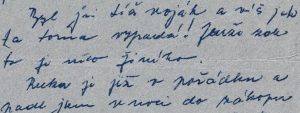 Byl jsi též voják a víš jak
ta doma vypadá! Jenže zde
to je něco jiného.
Ruka je již v pořádku a
padl jsem v noci do zákopu